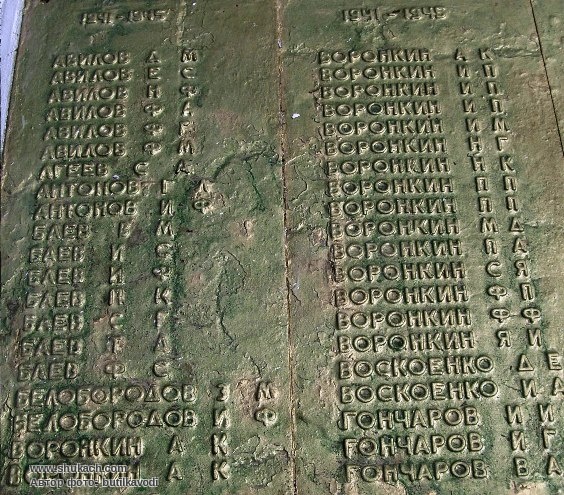 1941-1945
АВИЛОВ Д М
АВИЛОВ Е С
АВИЛОВ Н Ф
АВИЛОВ Ф А
АВИЛОВ Ф
АВИЛОВ Ф М
АГЕЕВ С А
АНТОНОВ Г Л
АНТОНОВ И Ф
БАЕВ М
БАЕВ И
БАЕВ И
БАЕВ К
БАЕВ С
БАЕВ А
БАЕВ Ф С
БЕЛОБОРОДОВ З М
БЕЛОБОРОДОВ И Ф
ВОРОНКИН А К
А К
1941-1945
ВОРОНКИН А К
ВОРОНКИН И П
ВОРОНКИН И П
ВОРОНКИН И П
ВОРОНКИН И М
ВОРОНКИН Н Г
ВОРОНКИН Н К
ВОРОНКИН П П
ВОРОНКИН П П
ВОРОНКИН М Д
ВОРОНКИН П А
ВОРОНКИН С Я
ВОРОНКИН Ф П
ВОРОНКИН Ф Ф
ВОРОНКИН Я И
ВОСКОЕНКО Д Е
ВОСКОЕНКО И А
ГОНЧАРОВ И И
ГОНЧАРОВ И Г
ГОНЧАРОВ В А
www.shukach.com
Автор фото: butilkavodi